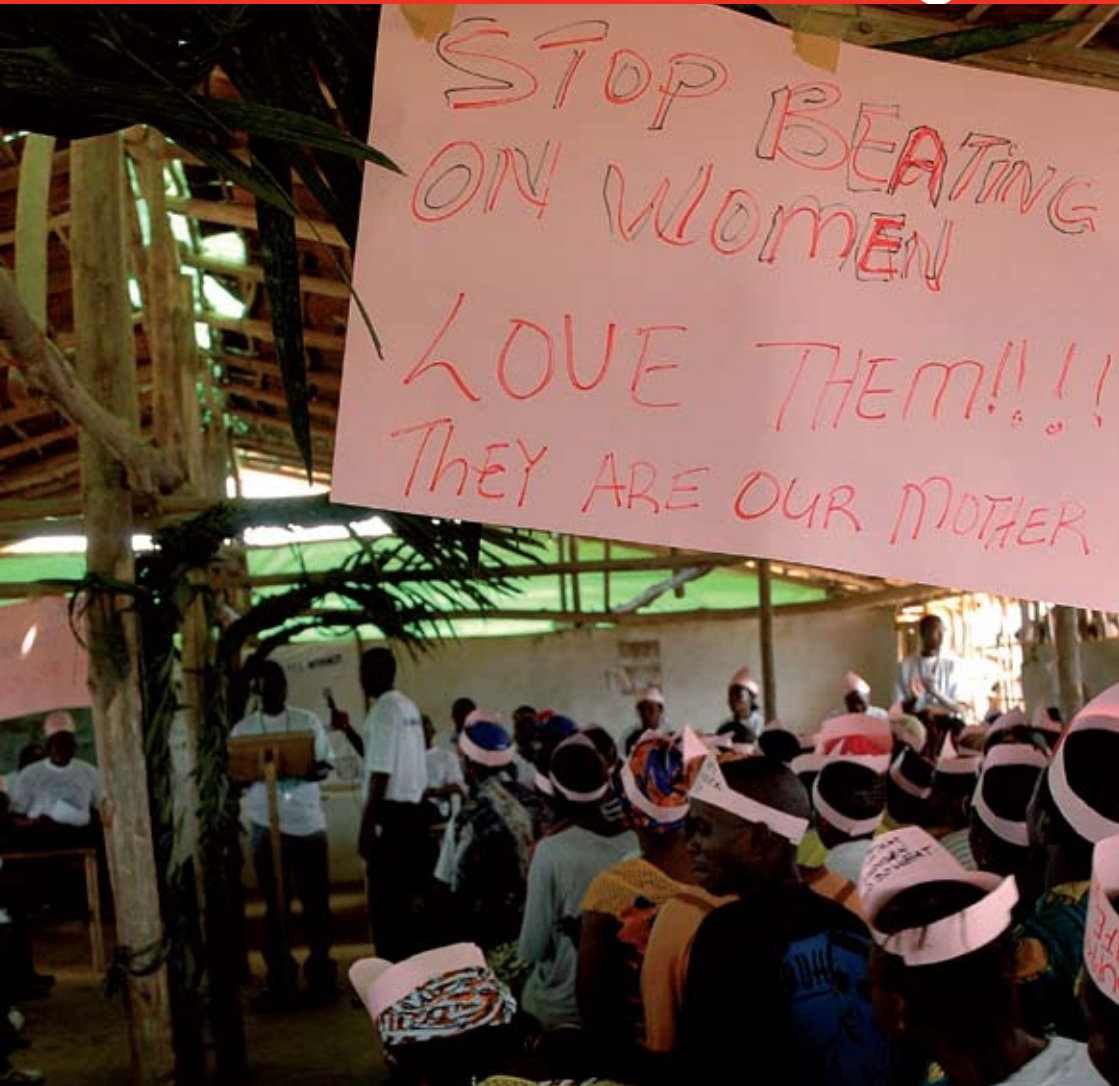 STOP BEATING
ON WOMEN
LOVE THEM!!!!
THEY ARE OUR MOTHER